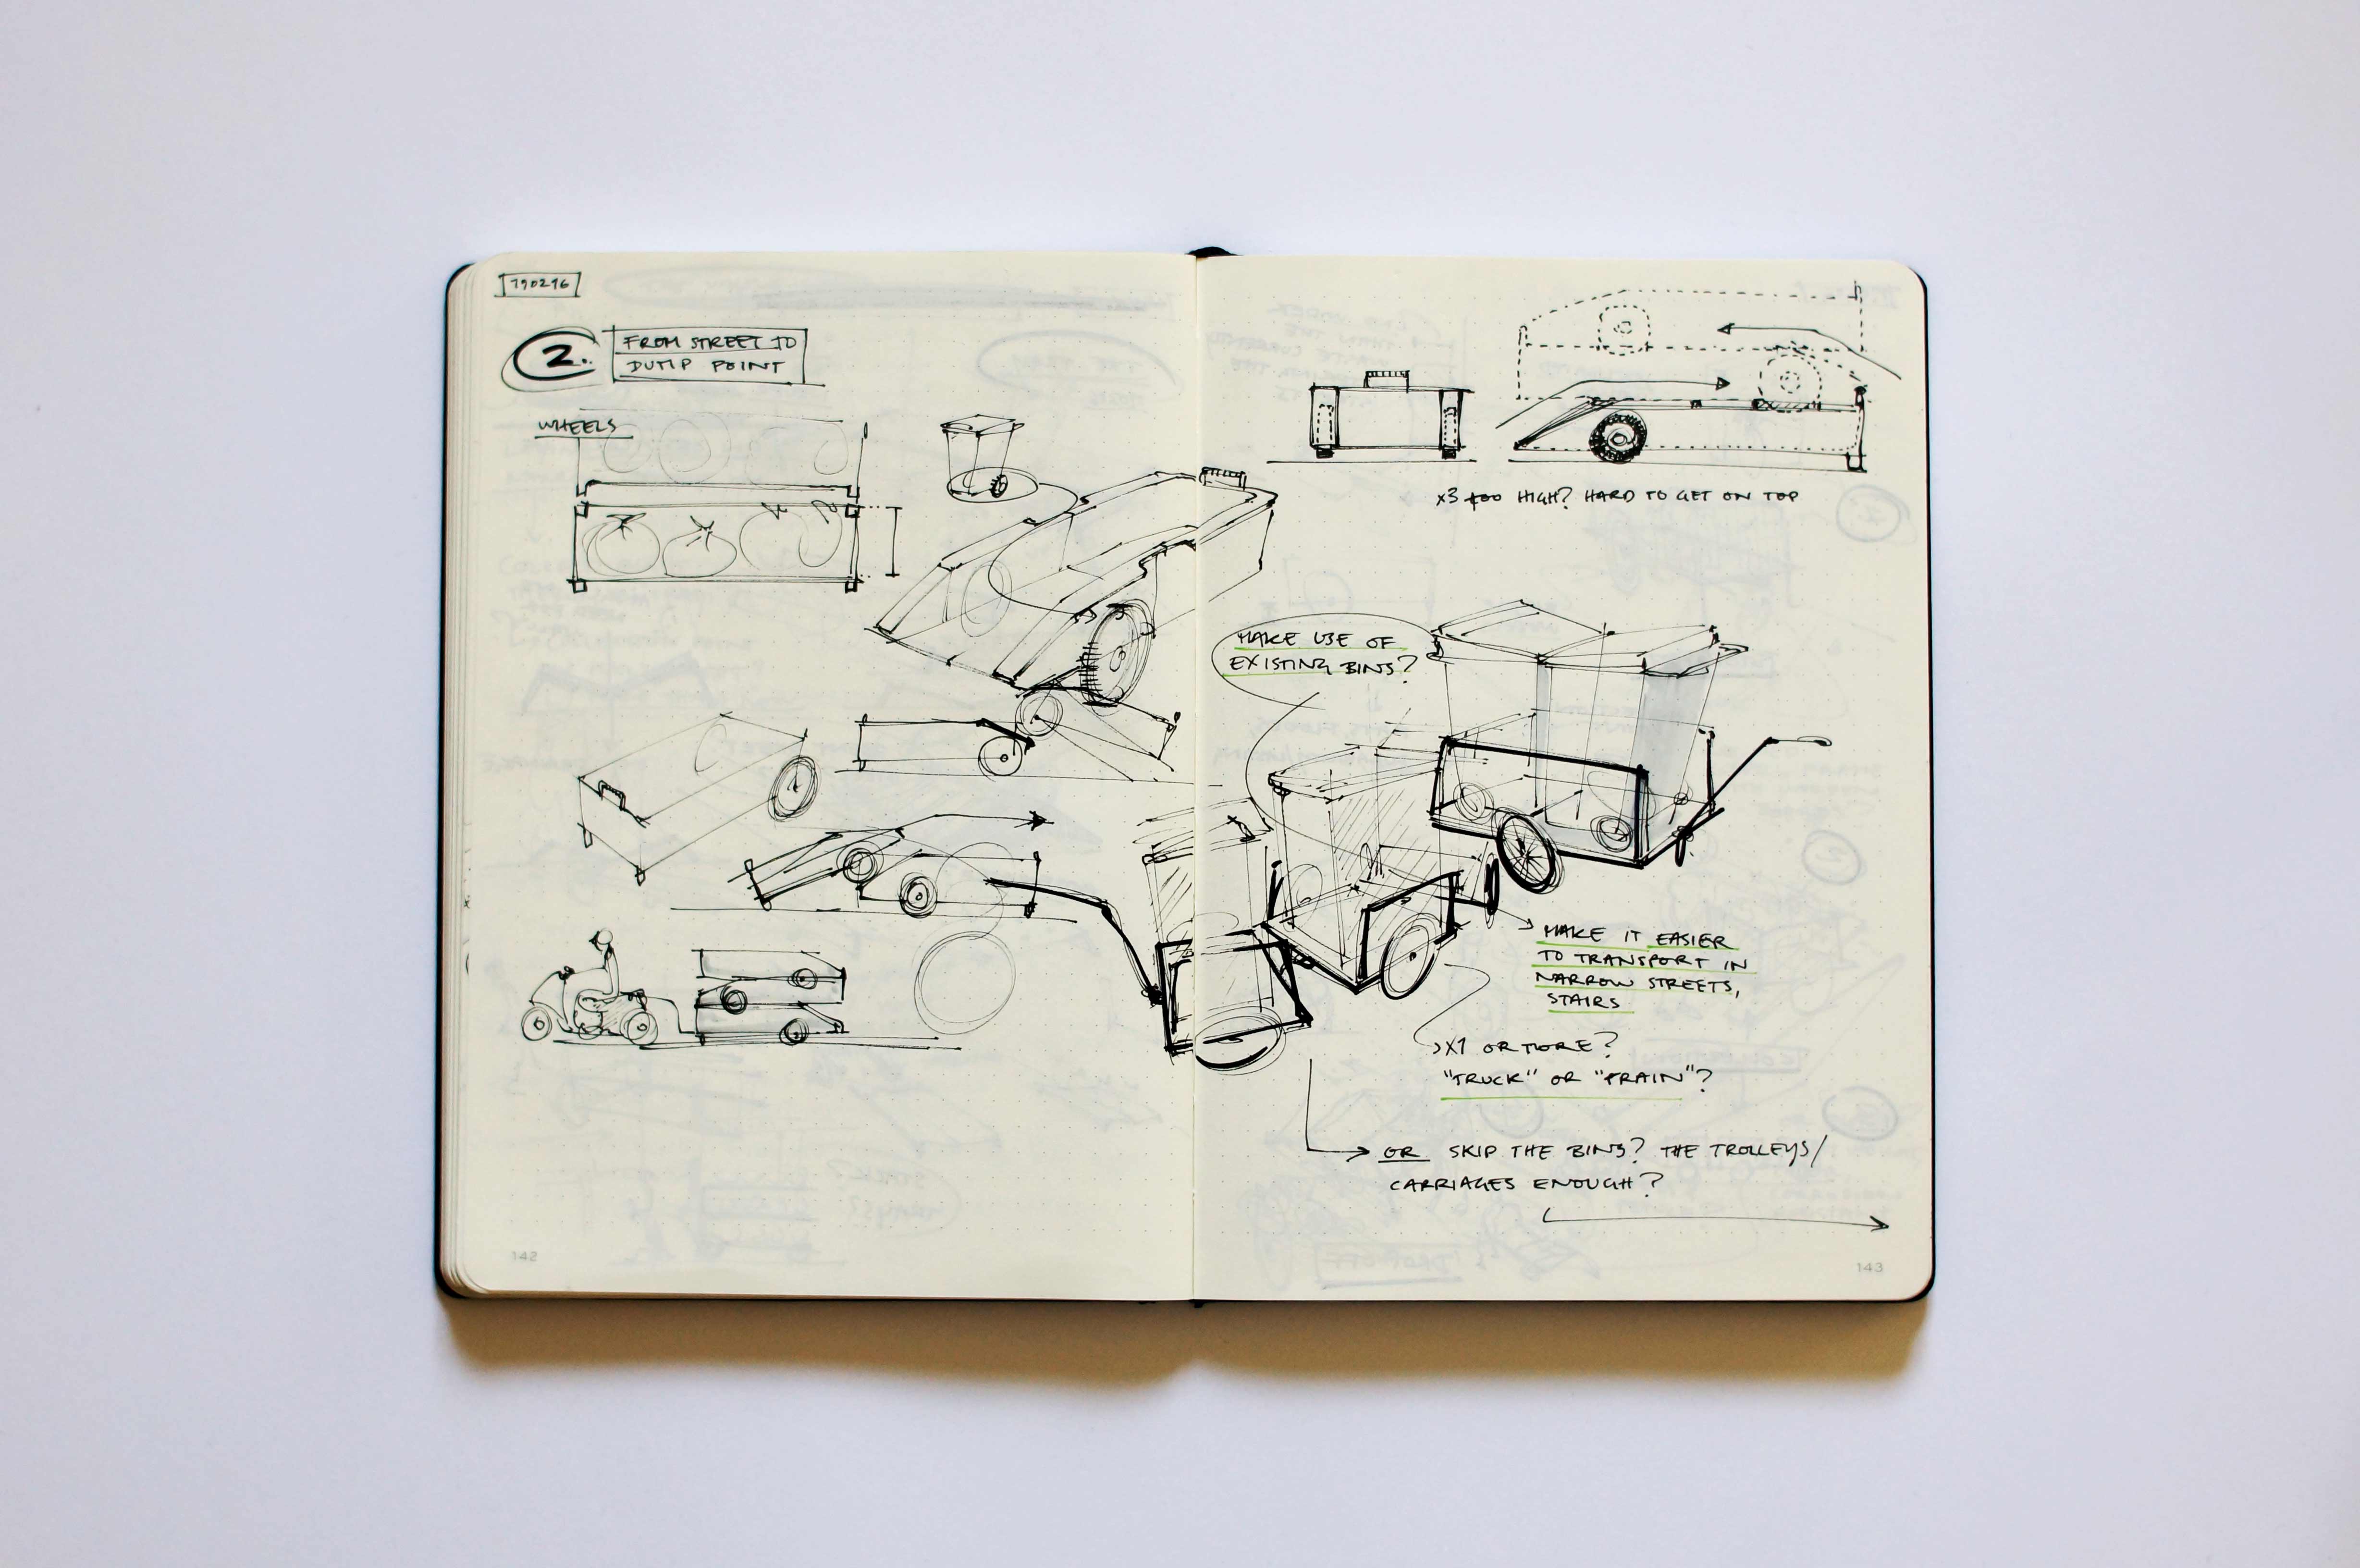 190216
2.
FROM STREET TO
DUMP POINT
WHEELS
142
x3 too HIGH? HARD TO GET ON TOP
MAKE USE OF
EXISTING BINS?
MAKE IT EASIER
TO TRANSPORT IN
NARROW STREETS,
STAIRS
x1 OR MORE?
"TRUCK" OR "TRAIN"?
OR SKIP THE BINS? THE TROLLEYS/
CARRIAGES ENOUGH?
143